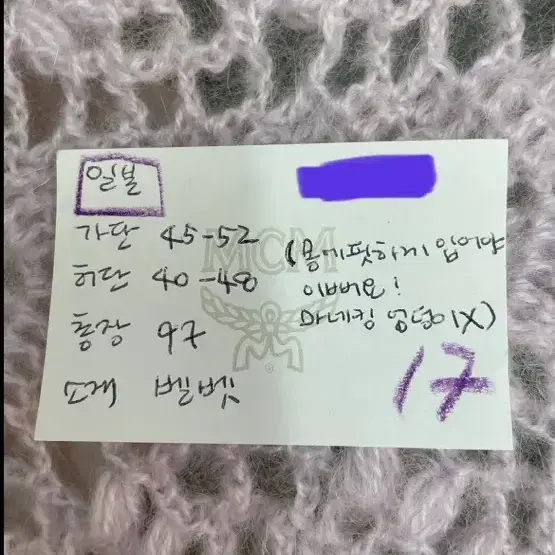 일본
가단 45-52
허단 40-48
총장 97
소재 벨벳
(몸에핏하게 입어야
이뻐요!
마네킹 엉덩이X)
17
MCM